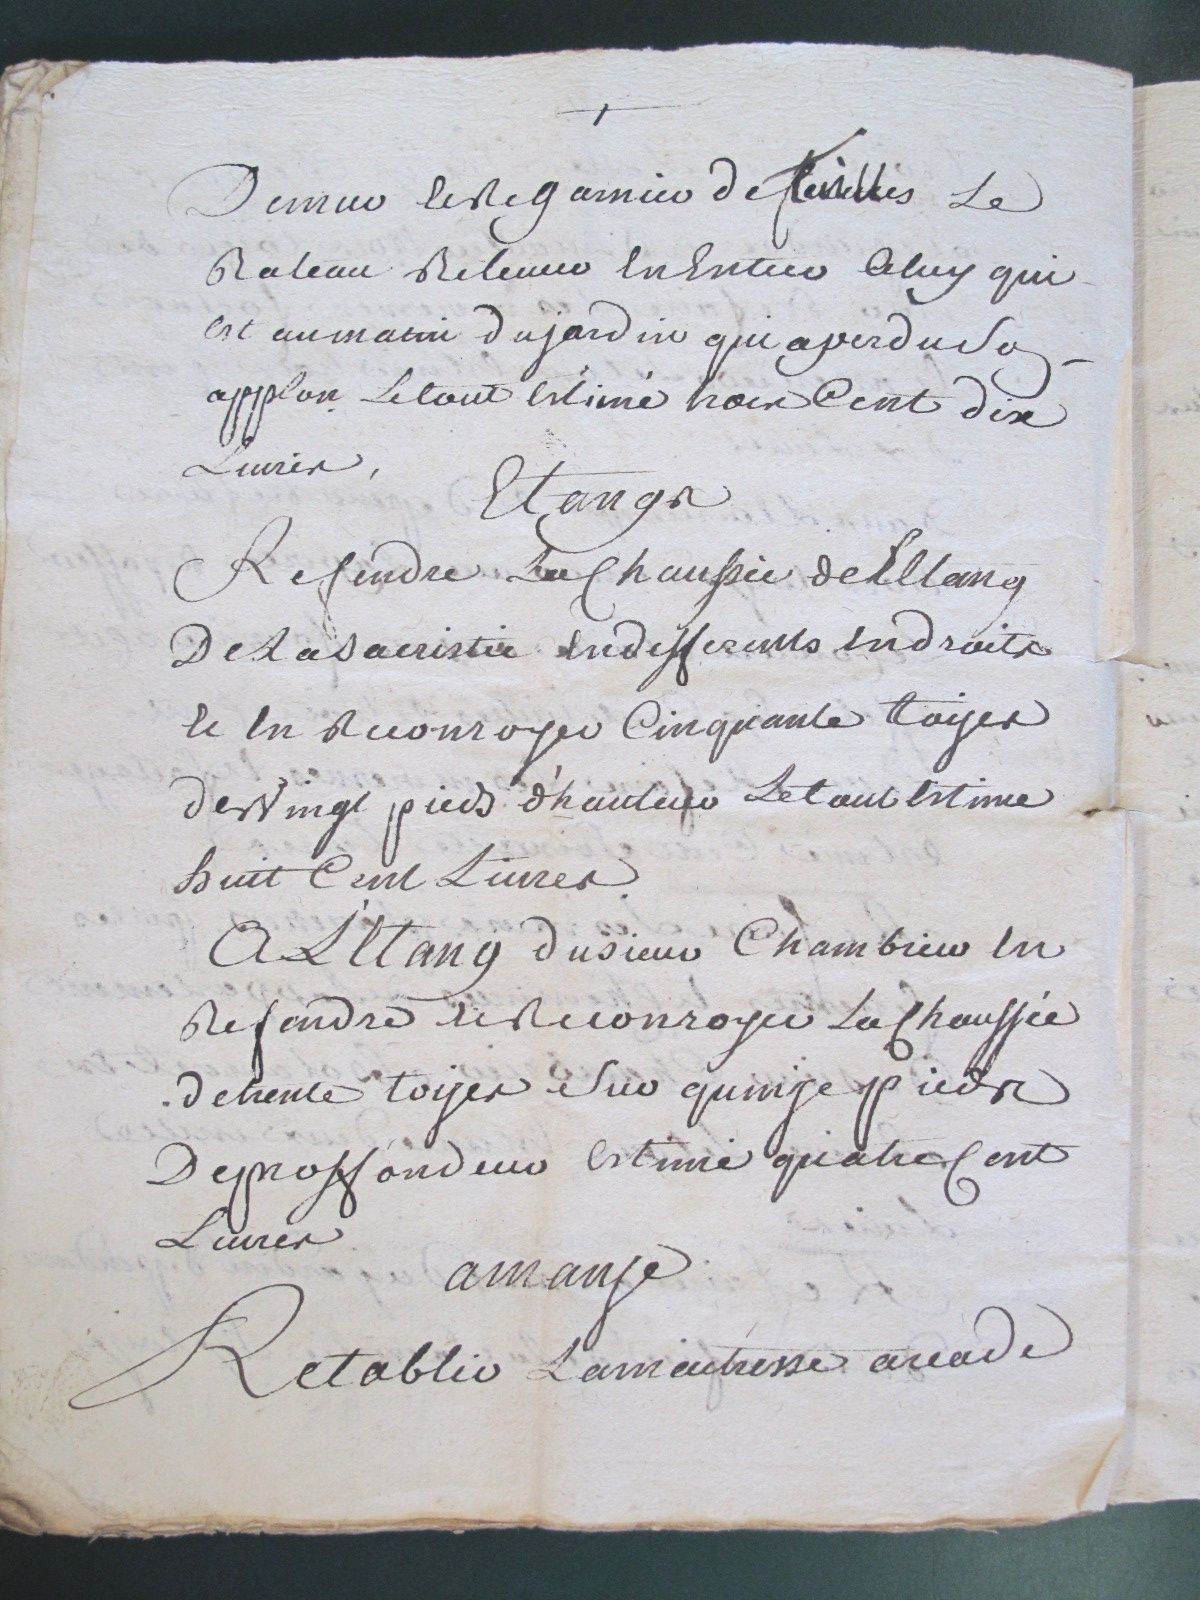 Demeu et Regarnier de  Le
Rateau Releuer en Entier Celuy qui
est au matin du jardin qui a perdu Son
applon. Le tout Estimé trois Cent dix
Liures,
Etangs
Refendre La Chaussée de L'Etang
De La Sacristie en differents endroits
et en Reconroyer Cinquante toises
de Vingt pieds d'hauteur Le tout Estimé
huit Cent Liures.
A L'Etang du sieur Chambrier en
Refendre et Reconroyer La Chaussée
de trente toises Sur quinze pieds
De proffondeur Estimé quatre Cent
Liures
amange
Retablir La maitresse arcade